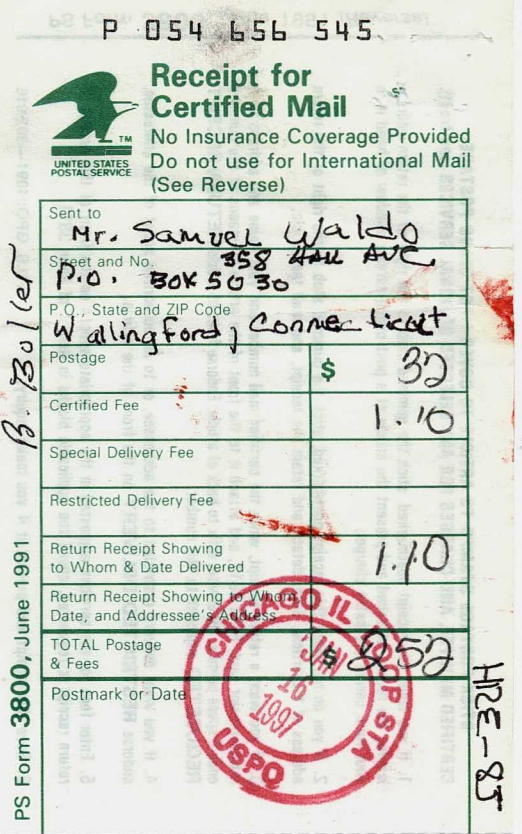 P 054 656 545
Receipt for
Certified Mail
No Insurance Coverage Provided
Do not use for International Mail
(See Reverse)
TM
UNITED STATES
POSTAL SERVICE
Sent to
Mr. Samuel Waldo
Street and No. 358 Hall AVE
P.O. BOX 5030
P.O., State and ZIP Code
Wallingford, Connecticut
Postage $ 32
Certified Fee 1.10
Special Delivery Fee
Restricted Delivery Fee
Return Receipt Showing
to Whom & Date Delivered 1.10
Return Receipt Showing to Whom,
Date, and Addressee's Address
TOTAL Postage
& Fees $ 252
Postmark or Date
CHICAGO IL LOOP STA
JAN
16
1997
USPO
PS Form 3800, June 1991
B. Boller